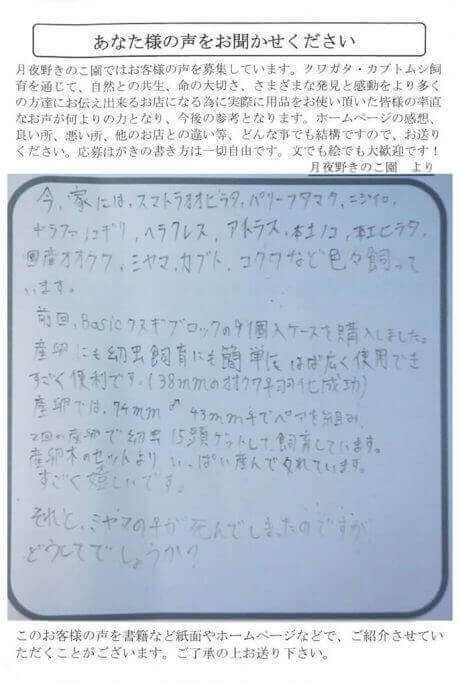 あなた様の声をお聞かせください
月夜野きのこ園ではお客様の声を募集しています。クワガタ・カブトムシ飼
育を通じて、自然との共生、命の大切さ、さまざまな発見と感動をより多く
の方達にお伝え出来るお店になる為に実際に用品をお使い頂いた皆様の率直
なお声が何よりの力となり、今後の参考となります。ホームページの感想、
良い所、悪い所、他のお店との違い等、どんな事でも結構ですので、お送り
ください。応募はがきの書き方は一切自由です。文でも絵でも大歓迎です！
月夜野きのこ園　より
今、家には、スマトラオオヒラタ、ペリーフタマタ、ニジイロ、
ギラファノコギリ、ヘラクレス、アトラス、本土ノコ、本土ヒラタ、
国産オオクワ、ミヤマ、カブト、コクワなど色々飼って
います。
前回、Basicクヌギブロックの9個入ケースを購入しました。
産卵にも幼虫飼育にも簡単にはば広く使用でき
すごく便利です。(38mmのオオクワ♀羽化成功)
産卵では、74mm♂ 43mm♀でペアを組み
2回の産卵で幼虫15頭ゲットして飼育しています。
産卵木のセットより いっぱい産んでくれています。
すごく嬉しいです。
それと、ミヤマの♀が死んでしまったのですが
どうしてでしょうか?
このお客様の声を書籍など紙面やホームページなどで、ご紹介させてい
ただくことがございます。ご了承の上お送り下さい。